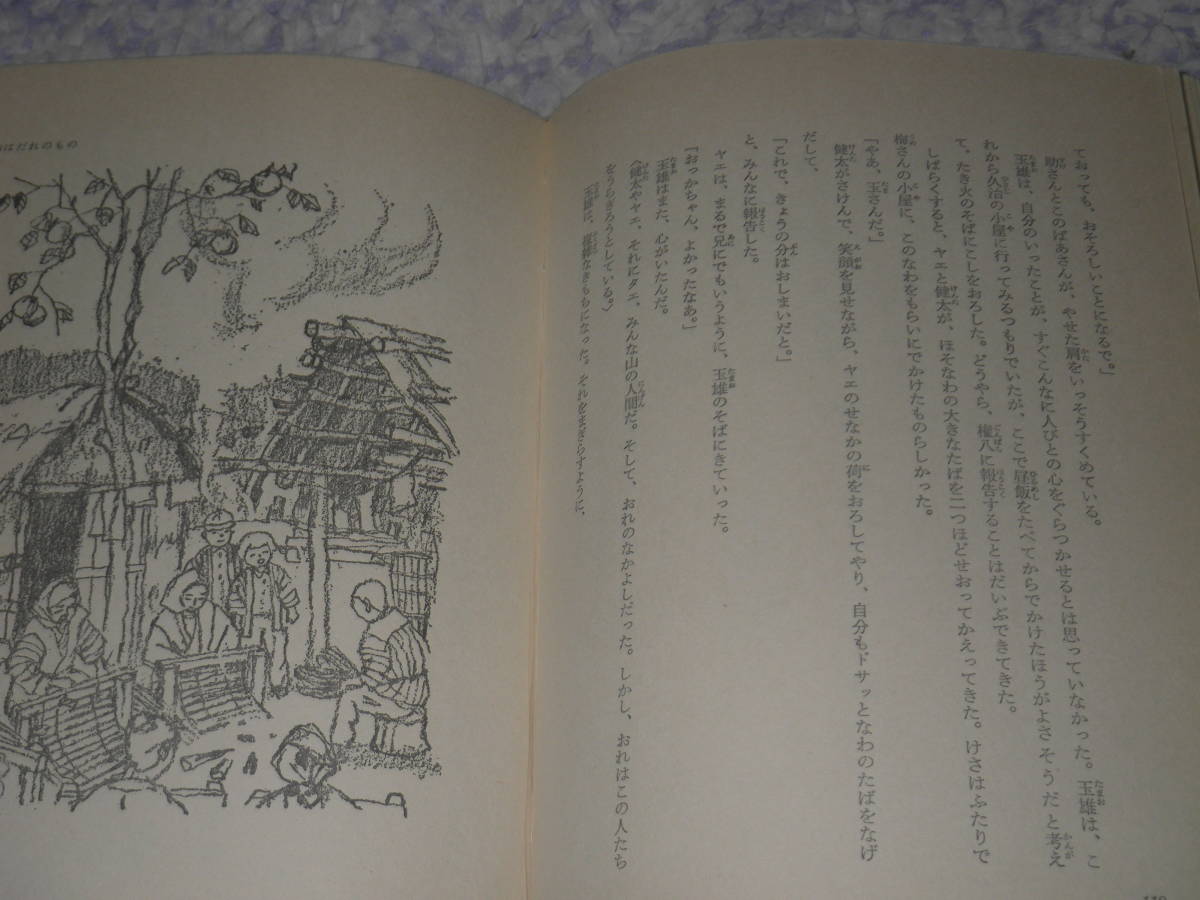 ておっても、おそろしいことになるで。」
助さんとこのばあさんが、やせた肩をいっそうすくめている。
玉雄は、自分のいったことが、すぐこんなに人びとの心をぐらつかせるとは思っていなかった。玉雄は、こ
れから久治の小屋に行ってみるつもりでいたが、ここで昼飯をたべてからでかけたほうがよさそうだと考え
て、たき火のそばにこしをおろした。どうやら、権八に報告することはだいぶできてきた。
しばらくすると、ヤエと健太が、ほそなわの大きなたばを二つほどせおってかえってきた。けさはふたりで
梅さんの小屋に、このなわをもらいにでかけたものらしかった。
「やあ、玉さんだ。」
健太がさけんで、笑顔を見せながら、ヤエのせなかの荷をおろしてやり、自分も、ドサッとなわのたばをなげ
だして、
「これで、きょうの分はおしまいだと。」
と、みんなに報告した。
ヤエは、まるで兄にでもいうように、玉雄のそばにきていった。
「おっかちゃん、よかったなあ。」
玉雄はまた、心がいたんだ。
〈健太やヤエ、それにタエ、みんな山の人間だ。そして、おれのなかよしだった。しかし、おれはこの人たち
をうらぎろうとしている。〉
玉雄は、複雑なきもちになった。それをまぎらすように、
はだれのもの